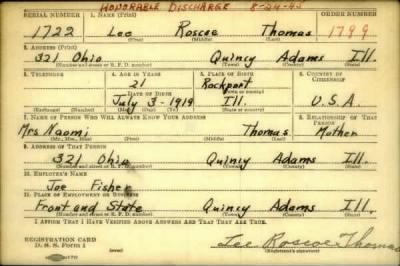 HONORABLE DISCHARGE 8-24-45
SERIAL NUMBER 1. NAME (Print) ORDER NUMBER
1722 Lee Roscoe Thomas 1799
(First) (Middle) (Last)
2. ADDRESS (Print)
321 Ohio Quincy Adams Ill.
(Number and street or R. F. D. number) (Town) (County) (State)
3. TELEPHONE 4. AGE IN YEARS 5. PLACE OF BIRTH 6. COUNTRY OF CITIZENSHIP
21 Rockport
DATE OF BIRTH
July 3-1919 Ill. U.S.A.
(Exchange) (Number) (Mo.) (Day) (Yr.) (State or country)
7. NAME OF PERSON WHO WILL ALWAYS KNOW YOUR ADDRESS 8. RELATIONSHIP OF THAT PERSON
Mrs Naomi Thomas Mother
(Mr., Mrs., Miss) (First) (Middle) (Last)
9. ADDRESS OF THAT PERSON
321 Ohio Quincy Adams Ill.
(Number and street or R. F. D. number) (Town) (County) (State)
10. EMPLOYER'S NAME
Joe Fisher
11. PLACE OF EMPLOYMENT OR BUSINESS
Front and State Quincy Adams Ill.
(Number and street or R. F. D. number) (Town) (County) (State)
I AFFIRM THAT I HAVE VERIFIED ABOVE ANSWERS AND THAT THEY ARE TRUE.
REGISTRATION CARD
D. S. S. Form 1
Lee Roscoe Thomas
(Registrant's signature)